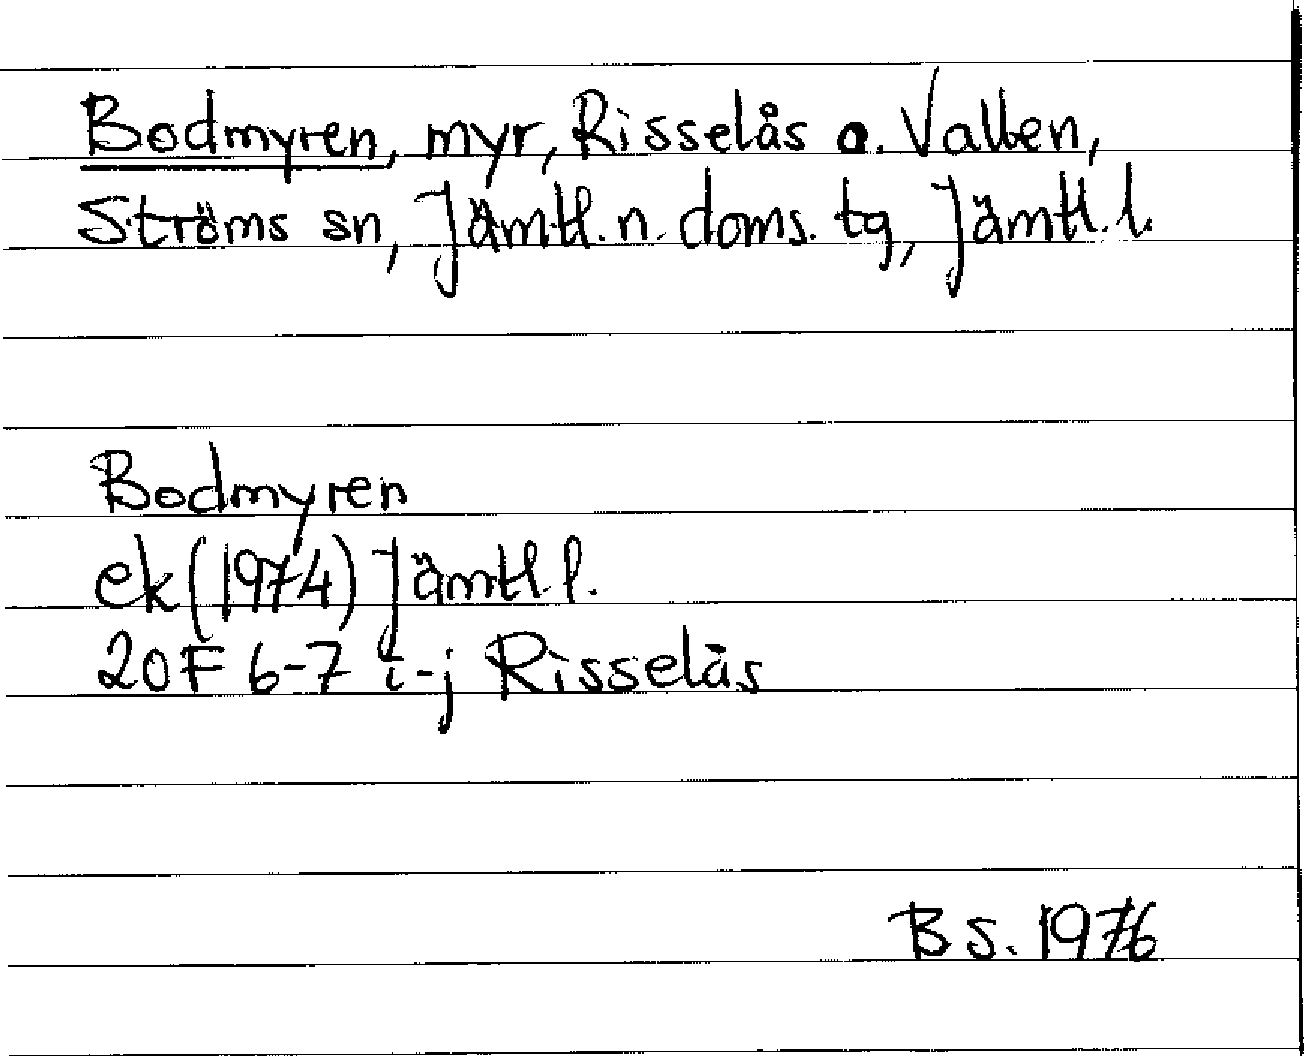 Bodmyren, myr, Risselås o. Vallen,
Ströms sn, Jämtl. n. doms. tg, Jämtl. l.
Bodmyren
ek (1974) Jämtl. l.
20F 6-7 i-j Risselås
B S. 1976